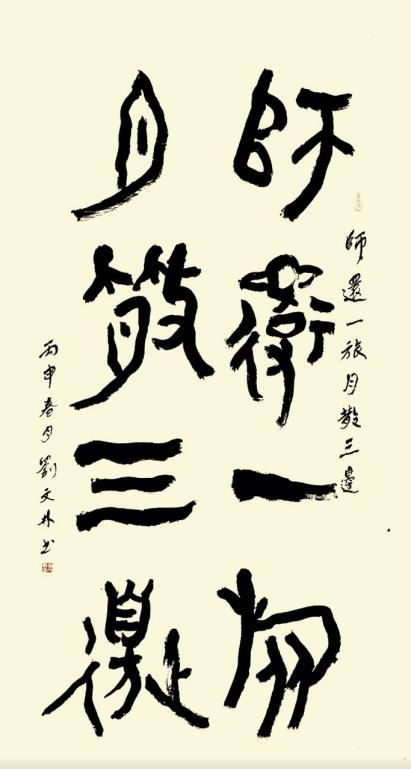 師還一旅月散三邊
師還一旅
月散三邊
丙申春月劉文书